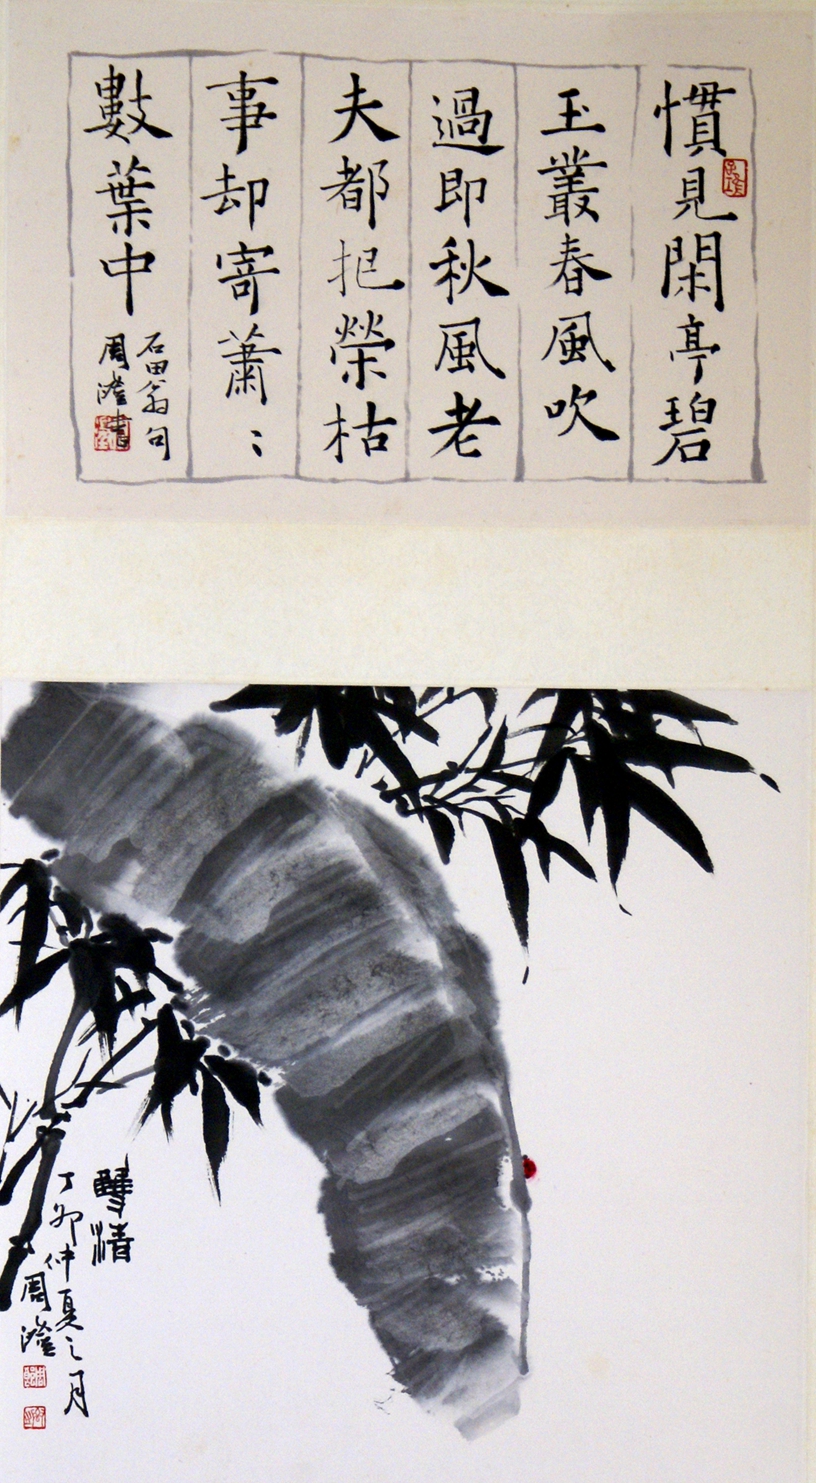 慣見閑亭碧
玉叢春風吹
過即秋風老
夫都把榮枯
事却寄蕭〻
數葉中
石田翁句
周澄書
雙清
丁卯仲夏之月
周澄